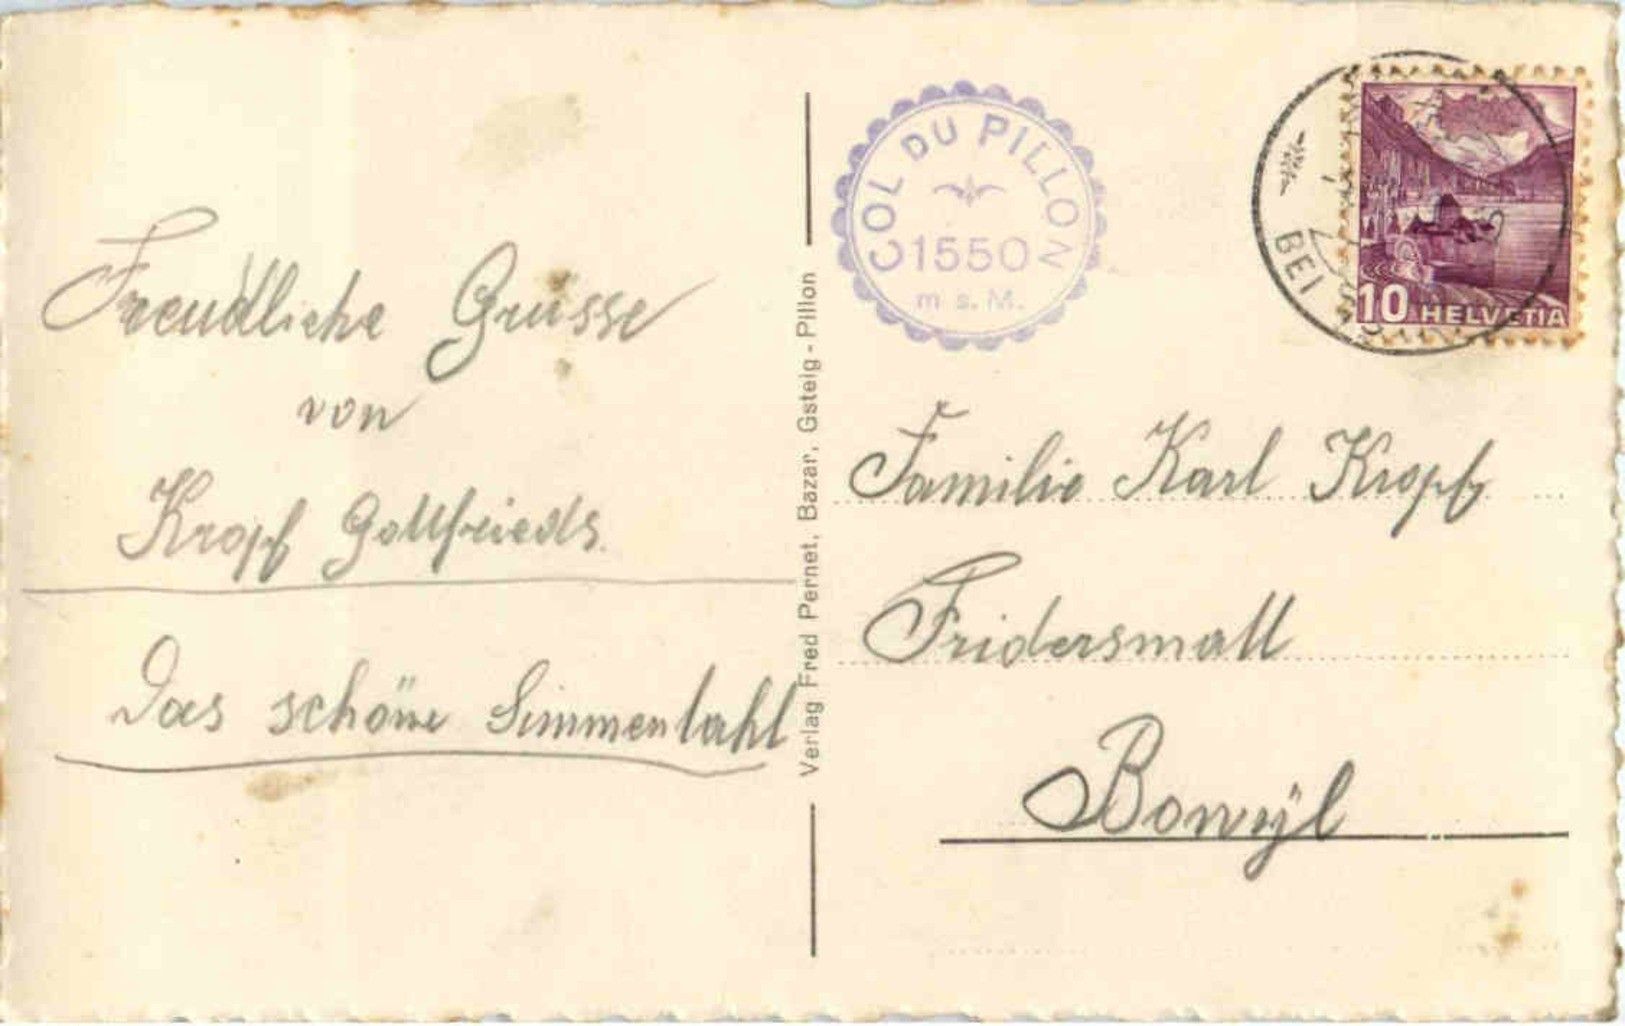 Freudliche Grüsse
von
Kropf Gottfrieds.
Das schöne Simmentahl
Verlag Fred Pernet, Bazar, Gsteig - Pillon
COL DU PILLON
1550
m s. M.
BEI
10 HELVETIA
Familie Karl Kropf
Fridersmatt
Bowÿl